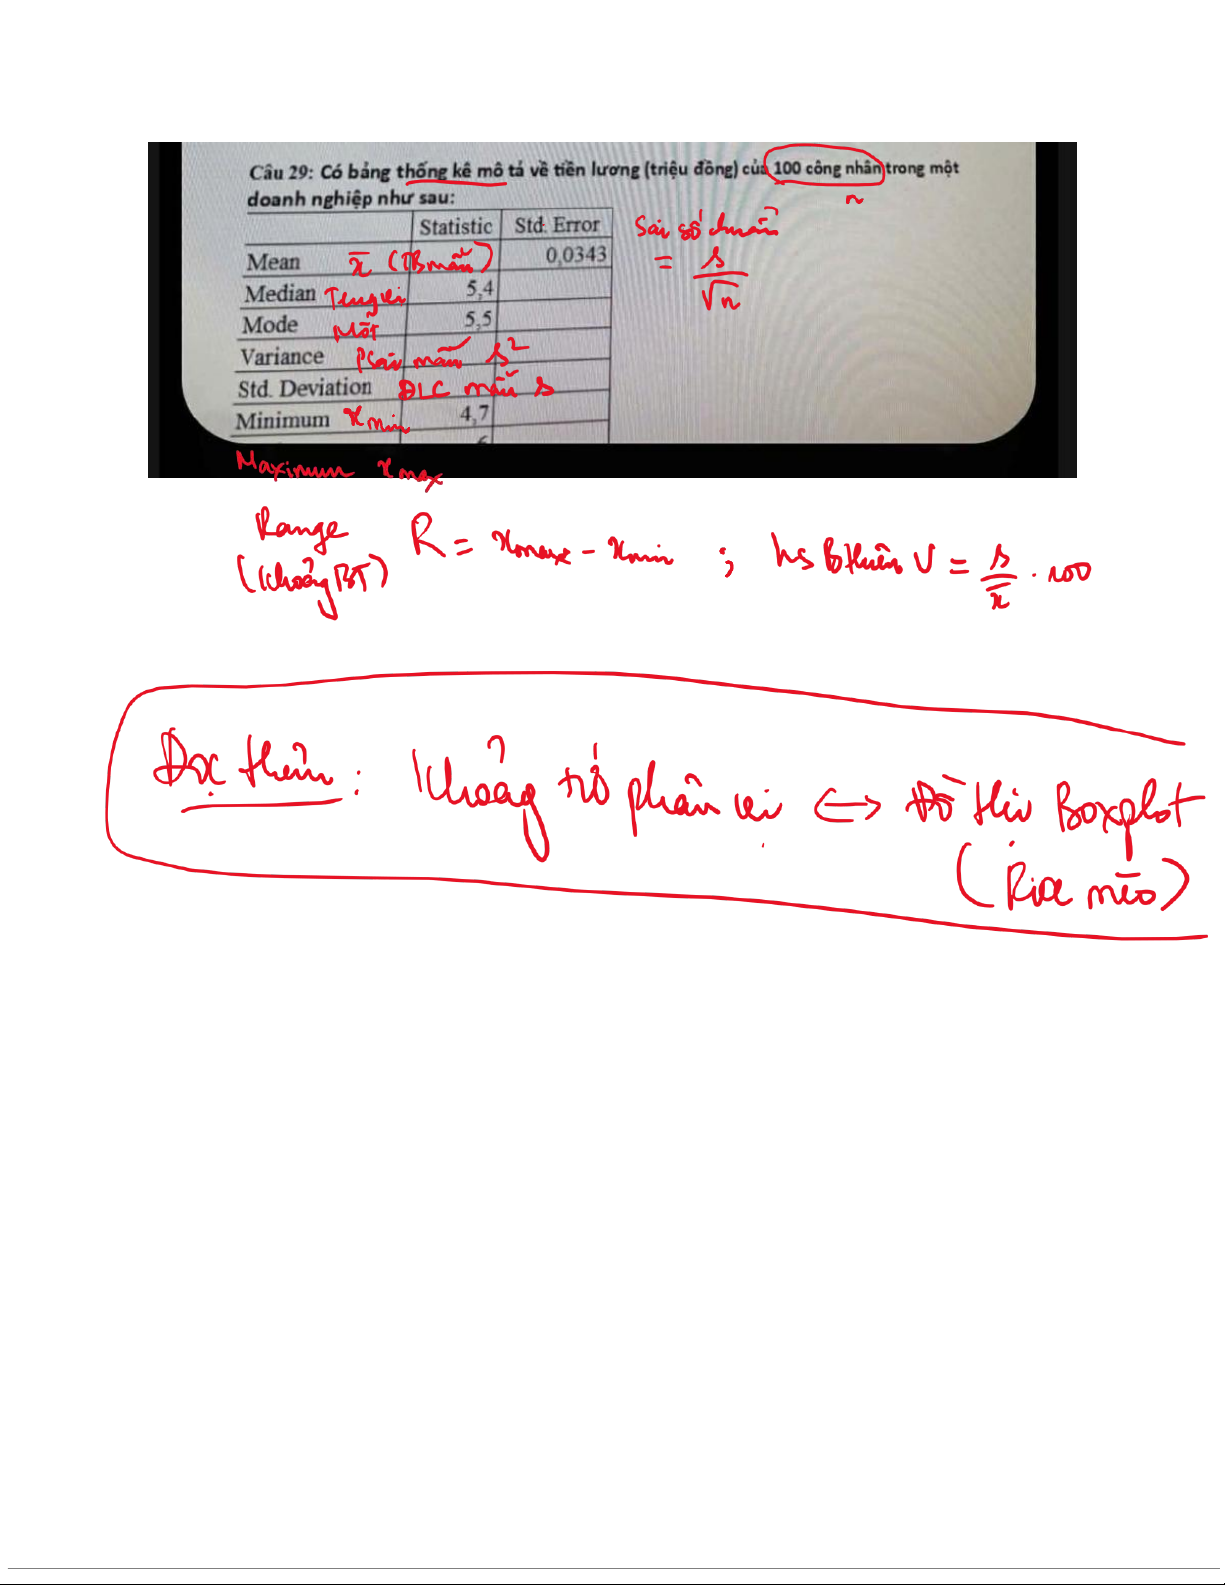 Câu 29: Có bảng thống kê mô tả về tiền lương (triệu đồng) của 100 công nhân trong một
n
doanh nghiệp như sau:
Statistic Std. Error
Sai số chuẩn
= s / √n
Mean x̄ (TB mẫu) 0,0343
Median Trung vị 5,4
Mode Mốt 5,5
Variance Psai mẫu s²
Std. Deviation ĐLC mẫu s
Minimum x min 4,7
6
Maximum x max
Range R = x max - x min ; hs Bthiên V = s / x̄ . 100
(Khoảng BT)
Đọc thêm : Khoảng tứ phân vị ↔ Đồ thị Boxplot
(Ria mèo)